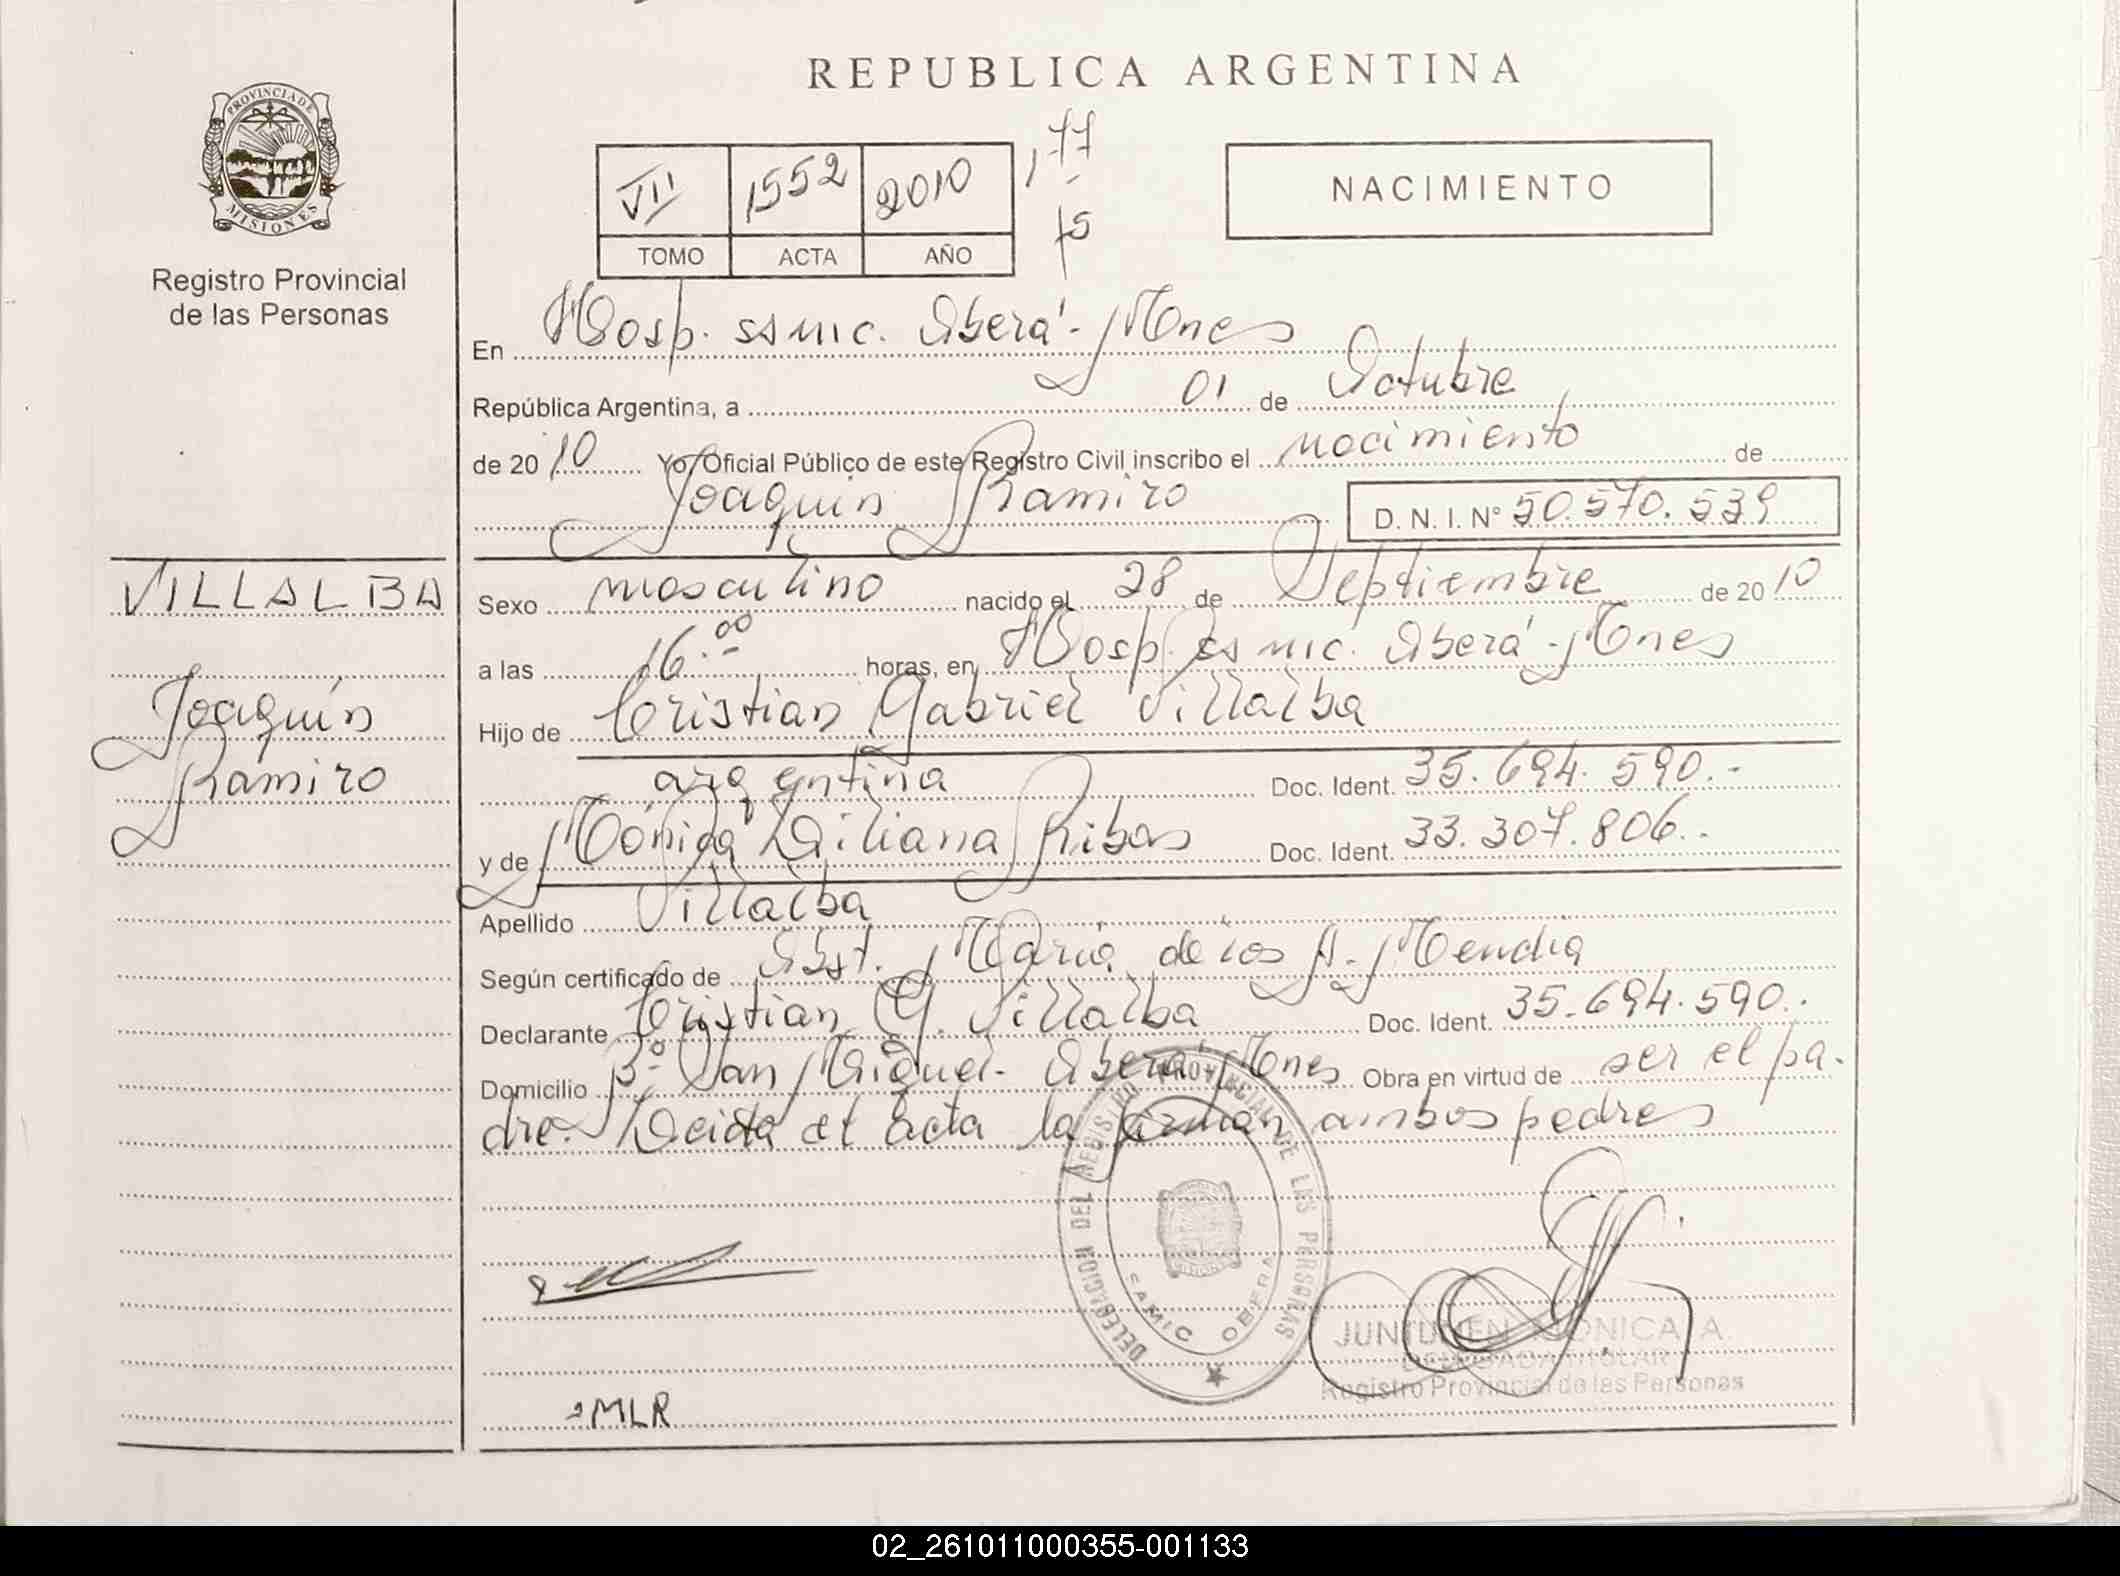 REPUBLICA ARGENTINA
PROVINCIA DE
MISIONES
Registro Provincial
de las Personas
VII 1552 2010
TOMO ACTA AÑO
NACIMIENTO
En Hosp. SAMIC. Oberá - Mnes
República Argentina, a 01 de Octubre
de 2010 Yo Oficial Público de este Registro Civil inscribo el nacimiento de
Joaquín Ramiro D. N. I. N° 50.570.539
VILLALBA
Joaquín
Ramiro
Sexo masculino nacido el 28 de Septiembre de 2010
a las 16.00 horas, en Hosp. SAMIC. Oberá - Mnes
Hijo de Cristian Gabriel Villalba
argentina Doc. Ident. 35.694.590.-
y de Mónica Liliana Ribas Doc. Ident. 33.307.806.-
Apellido Villalba
Según certificado de Obst. María de los A. Mendia
Declarante Cristian G. Villalba Doc. Ident. 35.694.590.
Domicilio B° San Miguel - Oberá Mnes Obra en virtud de ser el pa-
dre. Leida el acta la firman ambos padres
DELEGACION DEL REGISTRO PROVINCIAL DE LAS PERSONAS
SAMIC OBERA
JUNTUNEN MONICA A.
DELEGADA TITULAR
Registro Provincial de las Personas
MLR
02_261011000355-001133